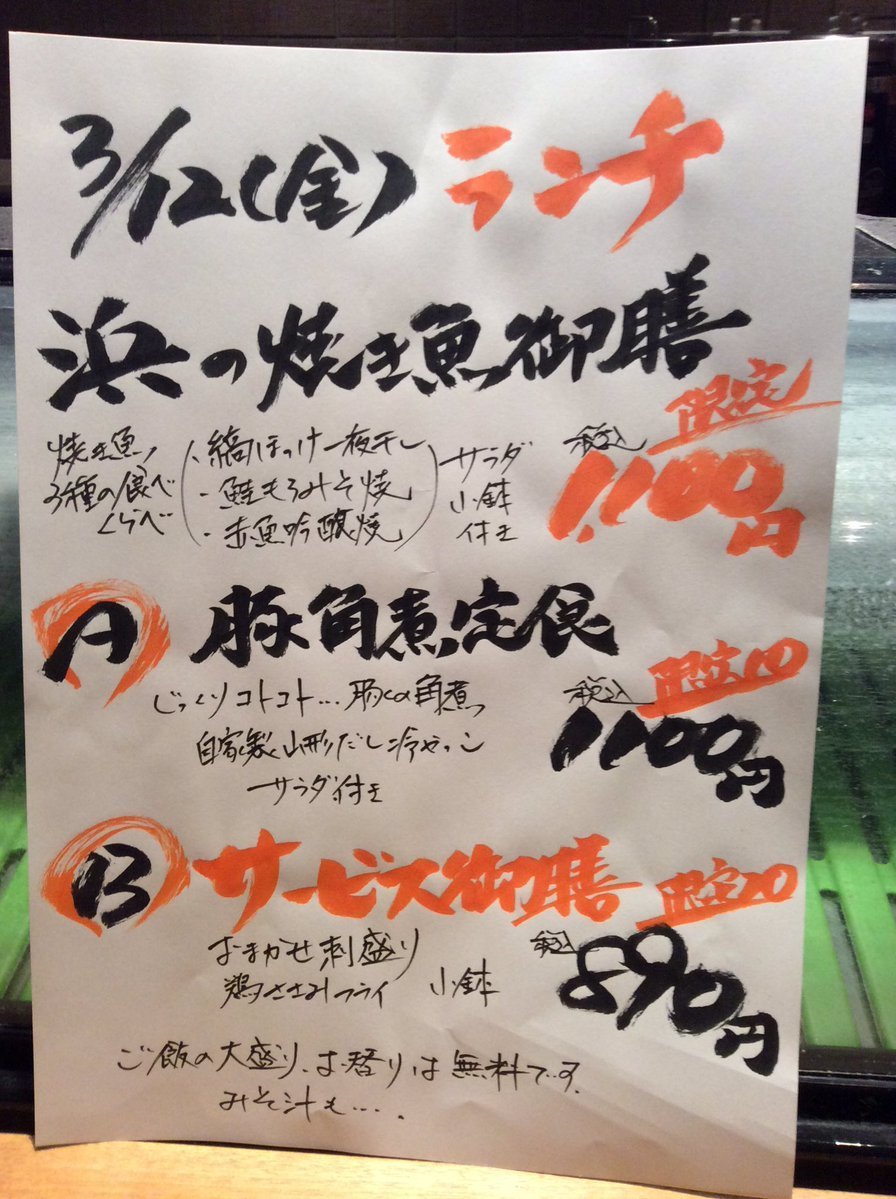 3/12(金) ランチ
浜の焼き魚御膳
限定
焼き魚
3種の食べ
くらべ
・縞ほっけ一夜干し
・鮭もろみそ焼
・赤魚吟醸焼
サラダ
小鉢
付き
税込
1100円
A 豚角煮定食
限定10
じっくりコトコト…豚の角煮
自家製山形だし冷やっこ
サラダ付き
税込
1100円
B サービス御膳
限定20
おまかせ刺盛り
鶏ささみフライ 小鉢
税込
890円
ご飯の大盛り、お替りは無料です
みそ汁も….